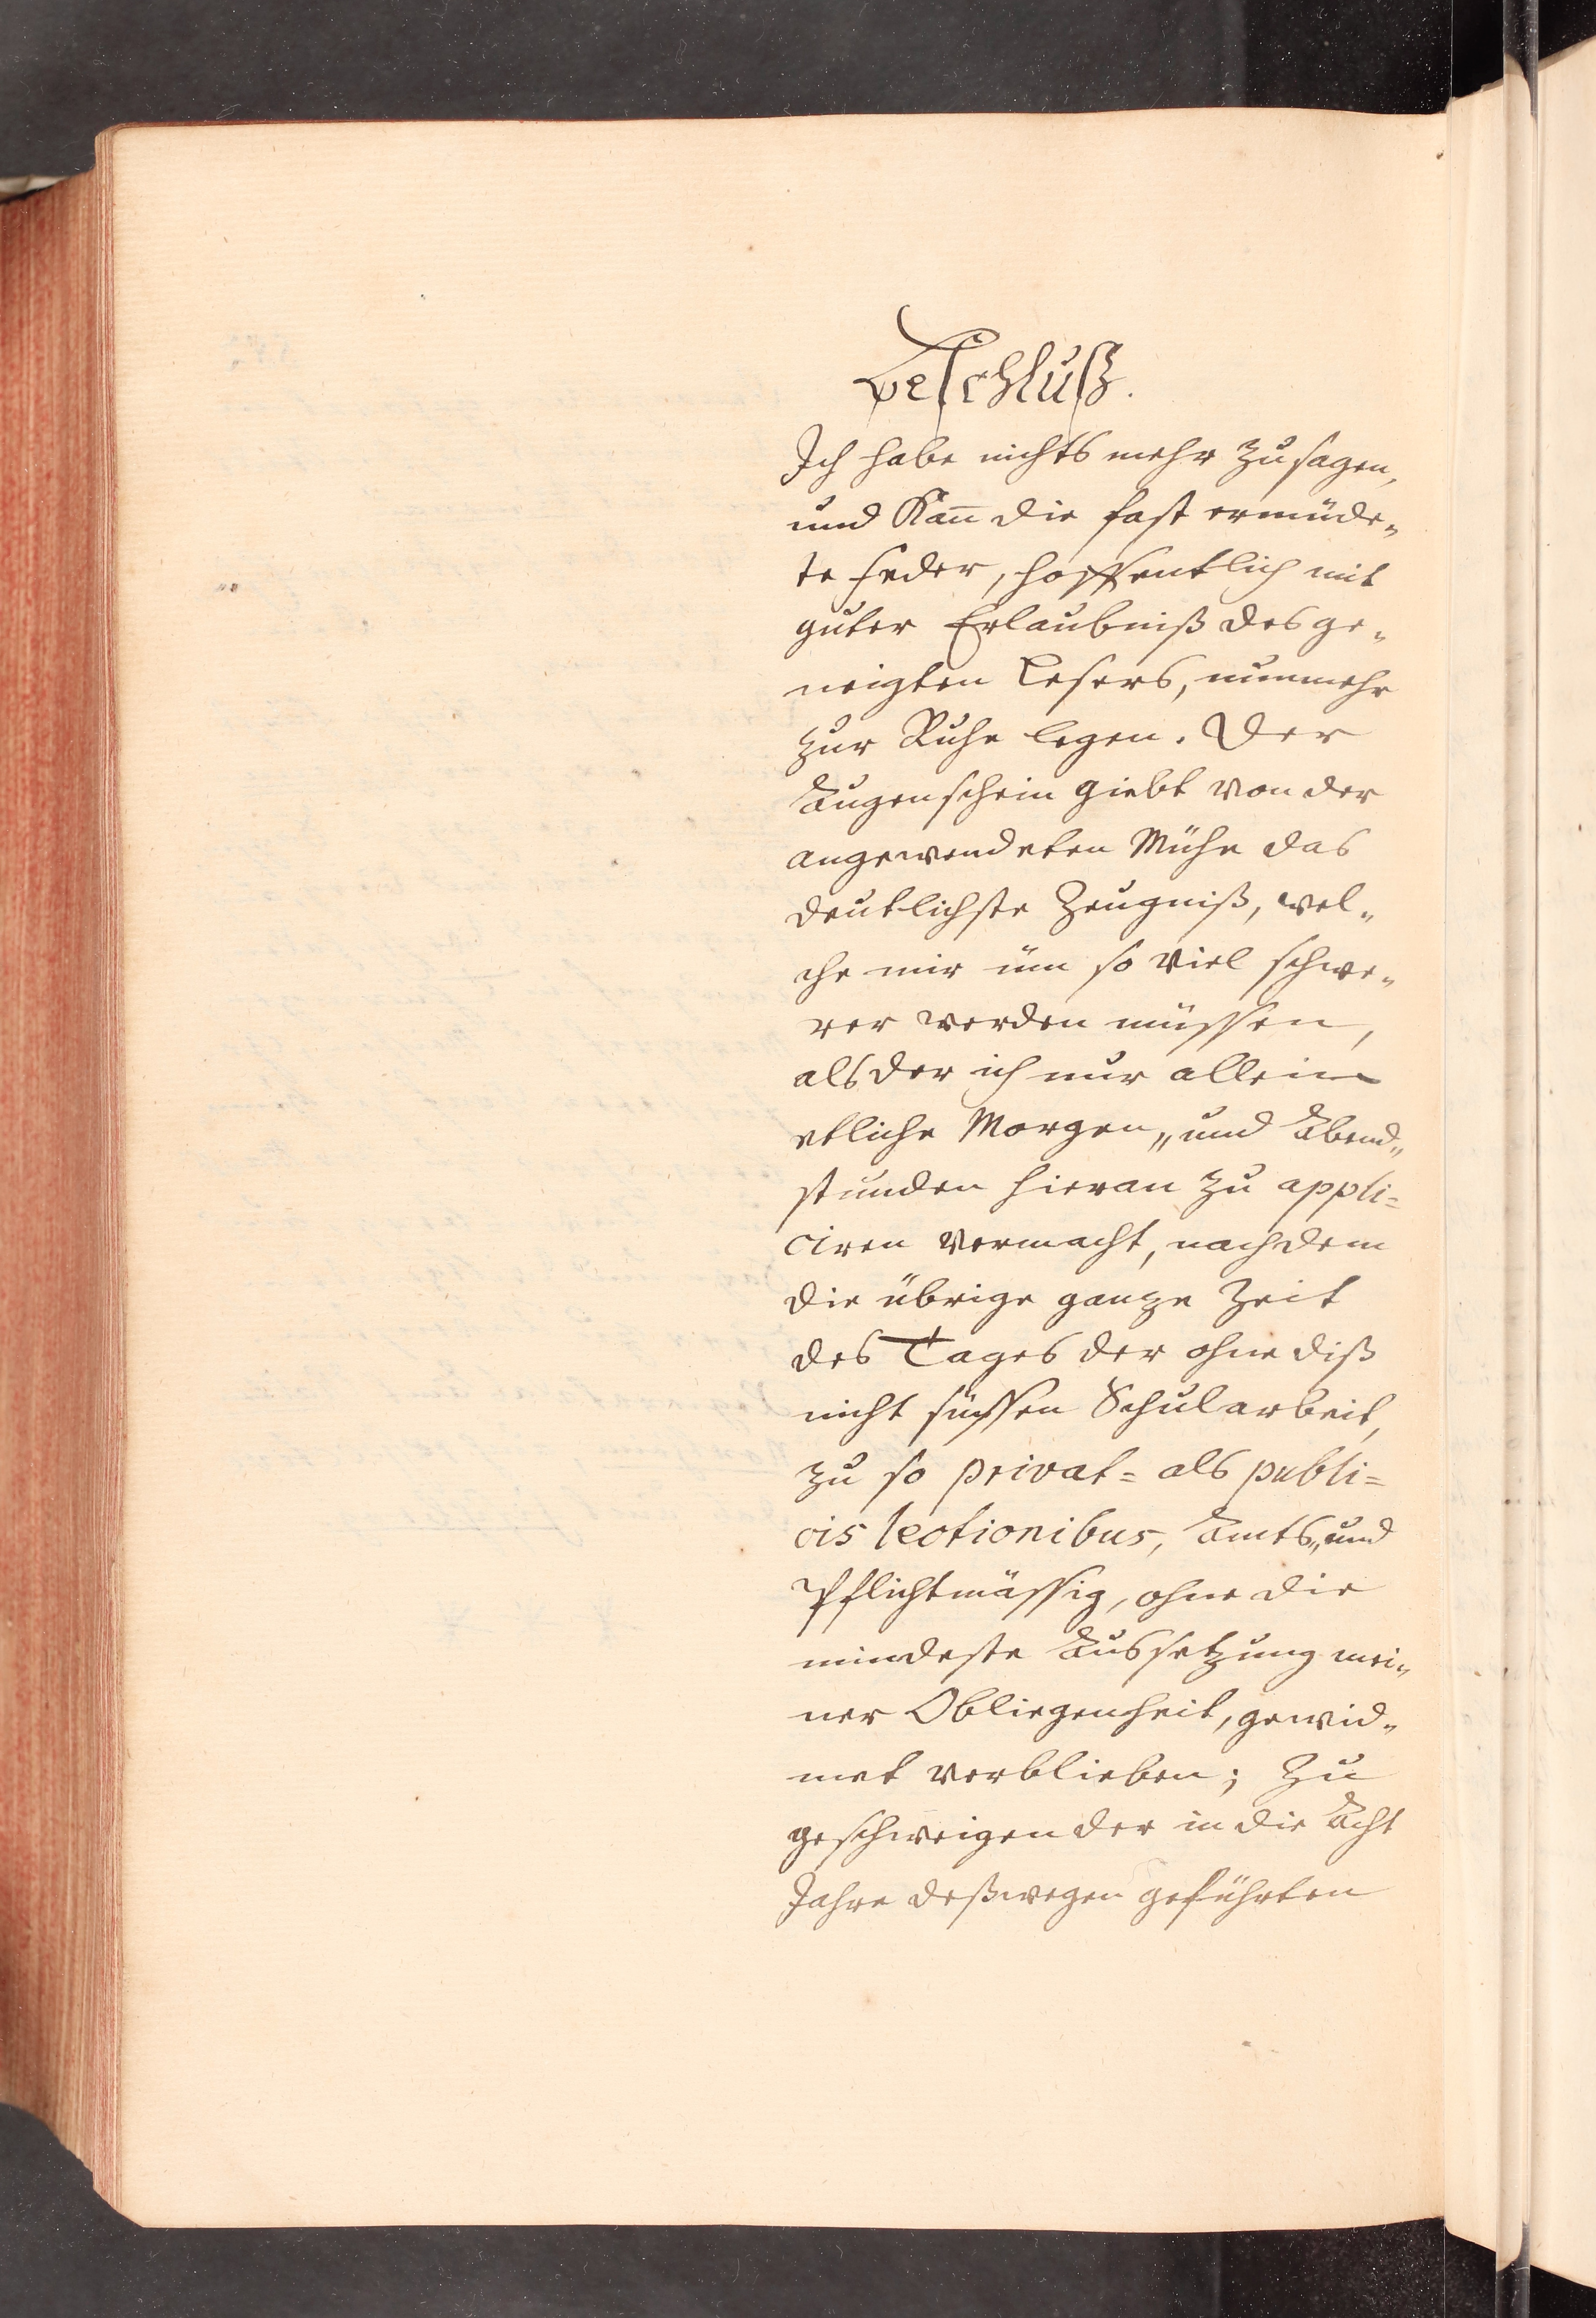 Beschluß.
Ich habe nichts mehr zu sagen,
und kan̄ die fast ermüde„
te Feder, hoffentlich mit
guter Erlaubniß des ge„
neigten Lesers, nunmehr
zur Ruhe legen. Der
Augenschein giebt von der
angewendeten Mühe das
deutlichste Zeugniß, wel„
che mir üm so viel schwe„
rer werden müssen,
als der ich nur allein
etliche Morgen„ und Abend„
stunden hieran zu appli=
ciren vermacht, nachdem
die übrige ganze Zeit
des Tages der ohne diß
nicht süssen Schularbeit,
zu so privat= als publi=
cis lectionibus, Amts„ und
Pflichtmässig, ohne die
mindeste Aussetzung mei„
ner Obliegenheit, gewid„
met verblieben; Zu
geschweigen der in die Acht
Jahre deßwegen geführten